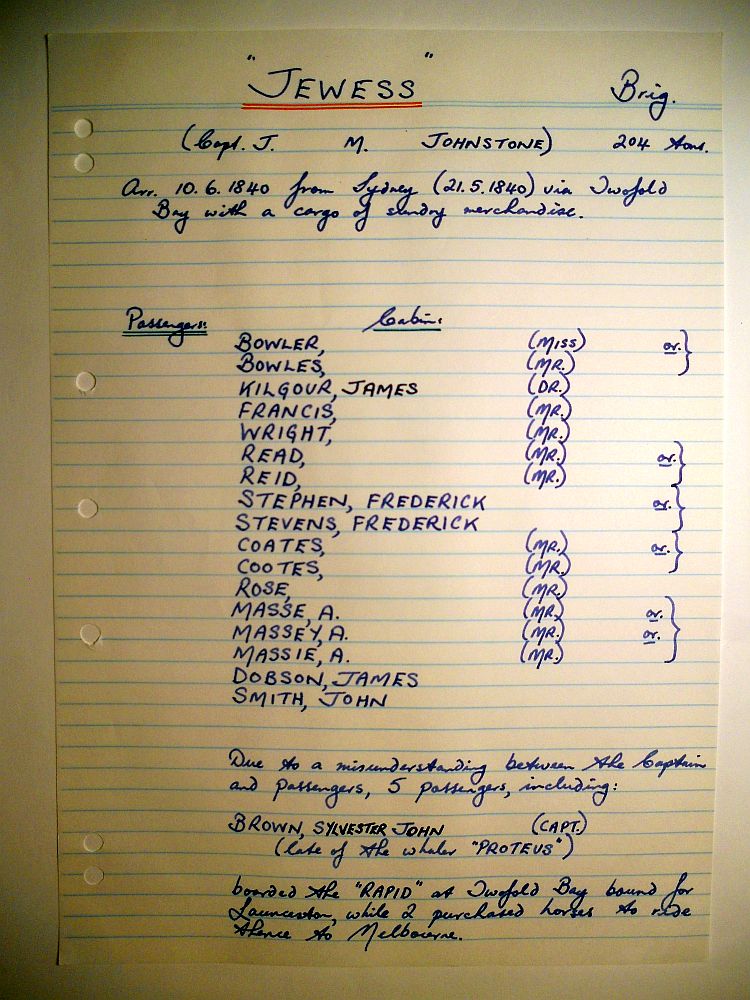 "JEWESS" Brig.
(Capt. J. M. JOHNSTONE) 204 tons.
Arr. 10.6.1840 from Sydney (21.5.1840) via Twofold
Bay with a cargo of sundry merchandise.
Passengers: Cabin:
BOWLER, (MISS) or.
BOWLES, (MR.)
KILGOUR, JAMES (DR.)
FRANCIS, (MR.)
WRIGHT, (MR.)
READ, (MR.) or.
REID, (MR.)
STEPHEN, FREDERICK or.
STEVENS, FREDERICK
COATES, (MR.) or.
COOTES, (MR.)
ROSE, (MR.)
MASSE, A. (MR.) or.
MASSEY, A. (MR.) or.
MASSIE, A. (MR.)
DOBSON, JAMES
SMITH, JOHN
Due to a misunderstanding between the Captain
and passengers, 5 passengers, including:
BROWN, SYLVESTER JOHN (CAPT.)
(late of the whaler "PROTEUS")
boarded the "RAPID" at Twofold Bay bound for
Launceston, while 2 purchased horses to ride
thence to Melbourne.